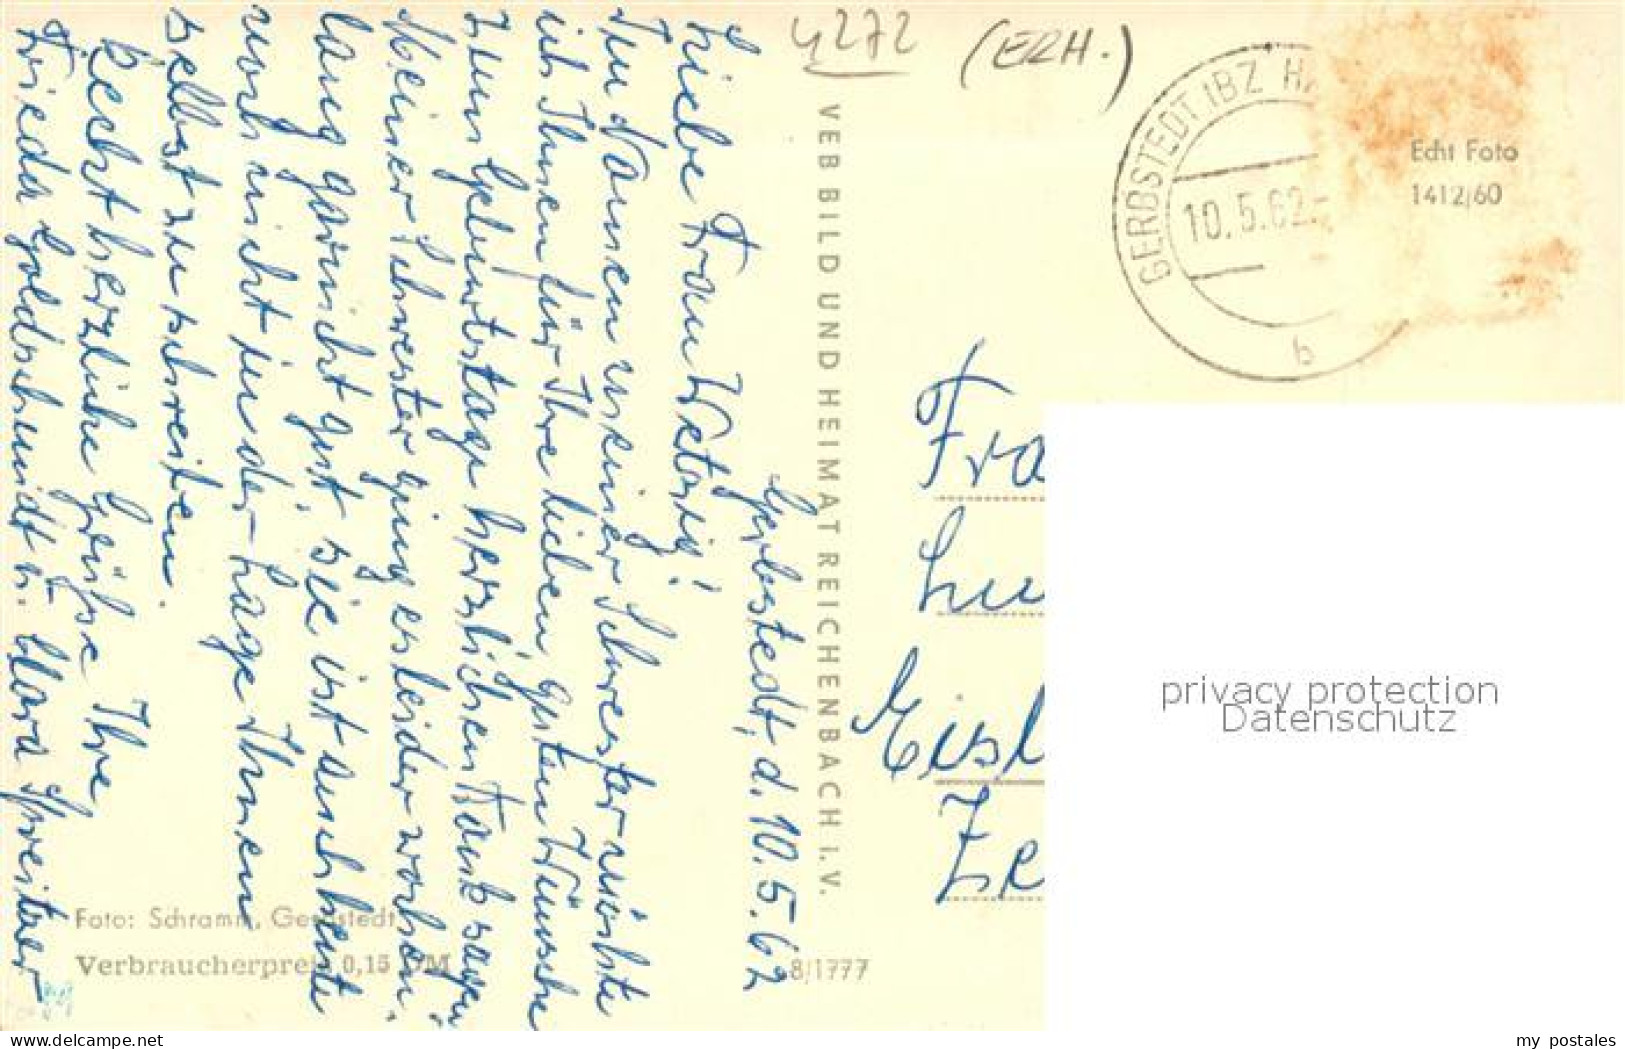 4272
(ERH.)
GERBSTEDT IBZ HA
10.5.62.-
b
Echt Foto
1412/60
VEB BILD UND HEIMAT REICHENBACH I.V.
Gerbstedt, d. 10.5.62
Liebe Frau
Im Namen meiner Schwester möchte
ich Ihnen für Ihre lieben guten Wünsche
zum Geburtstage herzlichen Dank sagen.
Meiner Schwester ging es leider wochen-
lang garnicht gut, sie ist auch heute
noch nicht in der Lage Ihnen
selbst zu schreiben.
Recht herzliche Grüße Ihre
Frieda Goldschmidt u. Clara
Fra
Lu
Eisl
Foto: Schramm, Gerbstedt
Verbraucherpreis 0,15 DM
8/1777
privacy protection
Datenschutz
delcampe.net
my_postales